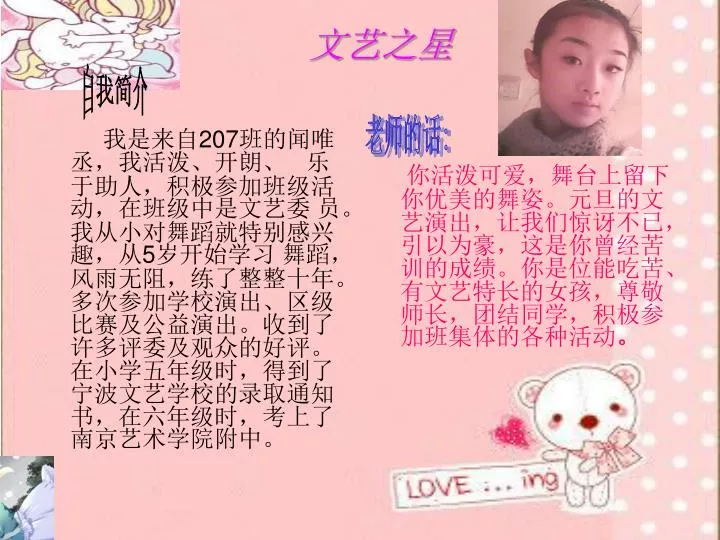 文艺之星
自我简介
我是来自207班的闻唯
丞，我活泼、开朗、 乐
于助人，积极参加班级活
动，在班级中是文艺委 员。
我从小对舞蹈就特别感兴
趣，从5岁开始学习 舞蹈，
风雨无阻，练了整整十年。
多次参加学校演出、区级
比赛及公益演出。收到了
许多评委及观众的好评。
在小学五年级时，得到了
宁波文艺学校的录取通知
书，在六年级时，考上了
南京艺术学院附中。
老师的话：
你活泼可爱，舞台上留下
你优美的舞姿。元旦的文
艺演出，让我们惊讶不已，
引以为豪，这是你曾经苦
训的成绩。你是位能吃苦、
有文艺特长的女孩，尊敬
师长，团结同学，积极参
加班集体的各种活动。
LOVE :... ing